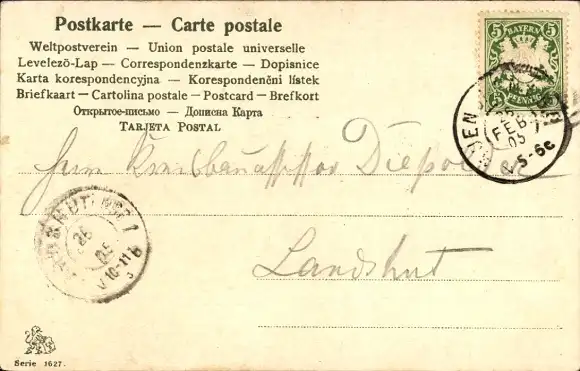 Postkarte — Carte postale
Weltpostverein — Union postale universelle
Levelezö-Lap — Correspondenzkarte — Dopisnice
Karta korespondencyjna — Korespondenčni lístek
Briefkaart — Cartolina postale — Postcard — Brefkort
Открытое-письмо — Дописна Карта
TARJETA POSTAL
5 BAYERN 5
PFENNIG
FEB
05
5-6
Herrn Kreisbauassessor
Landshut
LANDSHUT
26
05
V 10-11
Serie 1627.